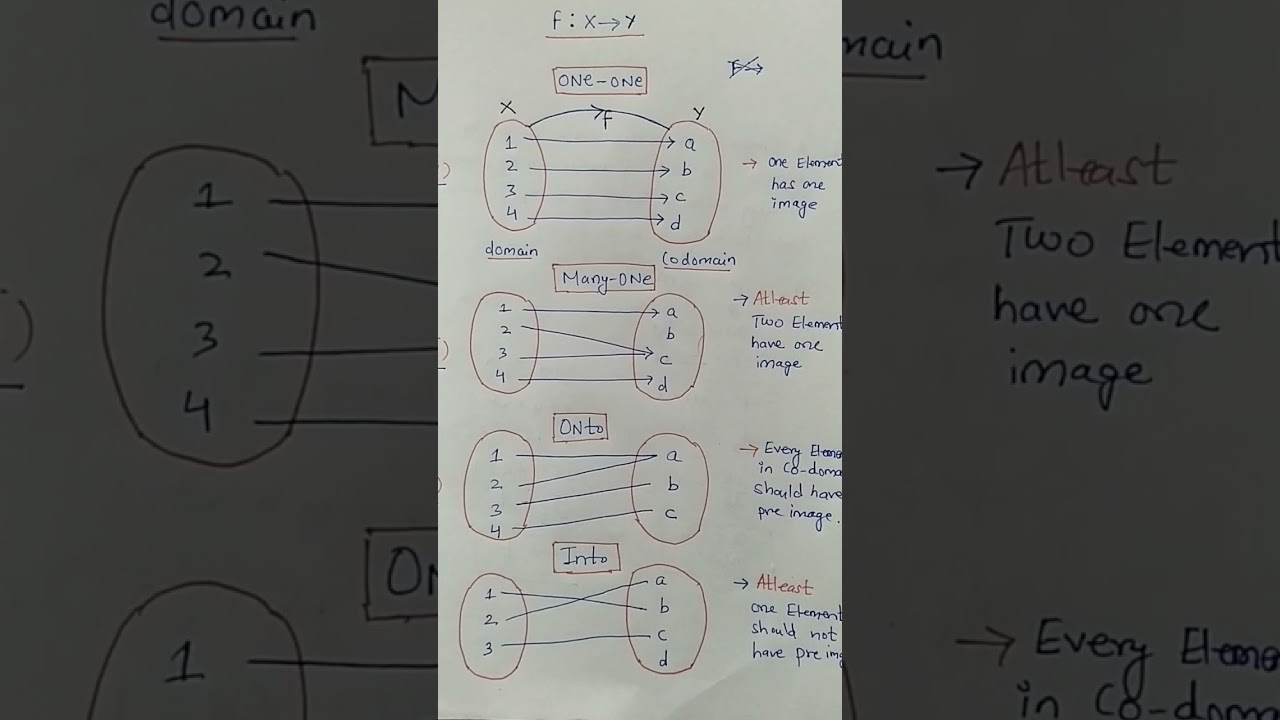 f : X → Y
ONe-ONe
X
Y
f
1
2
3
4
a
b
c
d
→ One Element
has one
image
domain
Codomain
Many-ONe
1
2
3
4
a
b
c
d
→ Atleast
Two Element
have one
image
ONto
1
2
3
4
a
b
c
→ Every
in Co-
should have
pre image.
Into
1
2
3
a
b
c
d
→ Atleast
one Element
should not
have pre
domain
1
2
3
4
1
→ Atleast
Two Element
have one
image
→ Every
in Co-